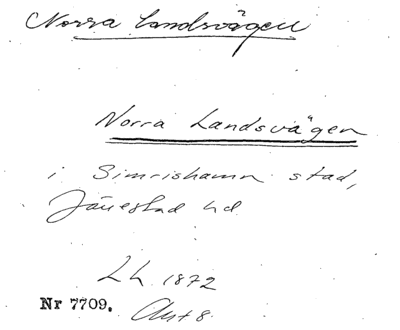 Norra Landsvägen
Norra Landsvägen
i Simrishamn stad,
Järrestad hd
L h 1872
Nr 7709.
Akt 8